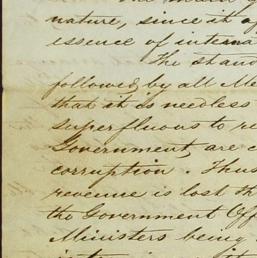 nature, since it of
essence of interna
The stand
followed by all Me
that it is needless
superfluous to re
Government, are c
corruption. Thus
revenue is lost th
the Government Off
Ministers being